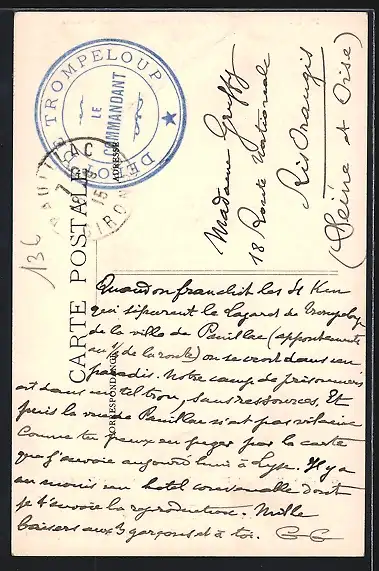 DÉPÔT DE TROMPELOUP
LE
COMMANDANT
CARTE POSTALE
CORRESPONDANCE
ADRESSE
PAUILLAC
7
15
GIRONDE
136
Madame Griffy
18 Route Nationale
Ris Orangis
(Seine et Oise)
Quand on franchit les 4 Km
qui séparent le lazaret de Trompeloup
de la ville de Pauillac (appontements
au ½ de la route) on se croit dans un
paradis. Notre camp de prisonniers
est dans un tel trou, sans ressources. Et
puis la vue de Pauillac n'est pas vilaine
comme tu peux en juger par la carte
que j'envoie aujourd'hui à
Il y a
au moins un hotel convenable dont
je t'envoie la reproduction. Mille
baisers aux 3 garçons et à toi. GG